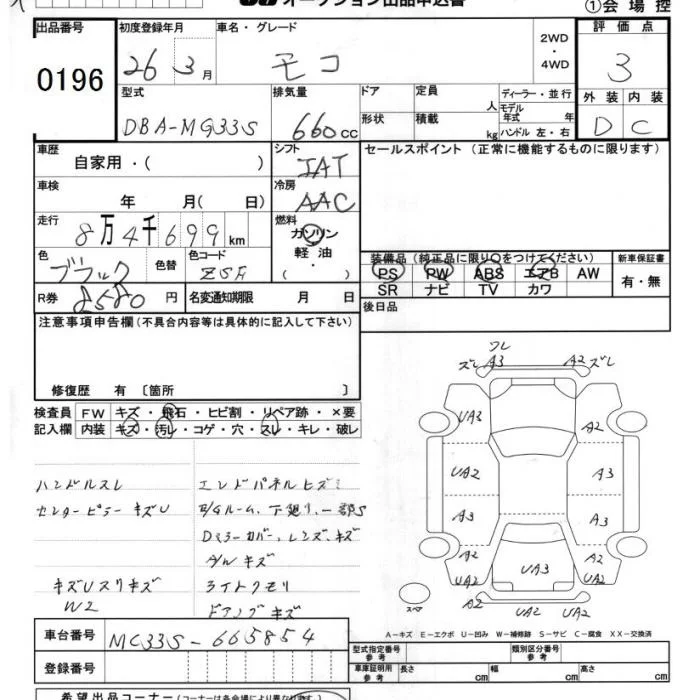 ①会場控
出品番号
0196
初度登録年月
26 3月
車名・グレード
モコ
2WD
・
4WD
評価点
3
外装 内装
D C
型式
DBA-MG33S
排気量
660cc
ドア
定員
人
形状
積載
kg
ディーラー・並行
モデル年式 年
ハンドル 左・右
車歴
自家用・( )
シフト
IAT
冷房
AAC
セールスポイント (正常に機能するものに限ります)
車検
年 月(日)
走行
8万4千699km
燃料
ガソリン
軽油
(・)
色
ブラック
色替
色コード
ZSA
装備品 (純正品に限り〇をつけてください)
PS PW ABS エアB AW
SR ナビ TV カワ
新車保証書
有・無
R券 8580円
名変通知期限 月 日
後日品
注意事項申告欄 (不具合内容等は具体的に記入して下さい)
修復歴 有 〔箇所 〕
検査員記入欄
FW キズ・飛石・ヒビ割・リペア跡・×要
内装 キズ・汚レ・コゲ・穴・スレ・キレ・破レ
ハンドルスレ
センターピラーキズU
キズUスリキズ
W2
エンドパネルヒズミ
E/Gルーム、下廻り、一部S
Dミラーカバー、レンズ、キズ
A/Wキズ
ライトクモリ
ドアノブキズ
ワレ
ズレ A3 A2 ズレ
UA3 A2
UA2 A3
A3 A3
A2 A2
UA2 UA3 UA2
A2 UA2 UA2
スペア
A-キズ E-エクボ U-凹み W-補修跡 S-サビ C-腐食 XX-交換済
車台番号
MG33S-665854
登録番号
型式指定番号
参考
類別区分番号
参考
車庫証明用
参考
長さ cm 幅 cm 高さ cm
希望出品コーナー